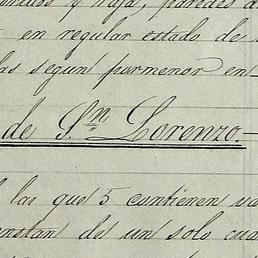 y paja, paredes d
en regular estado de
las según pormenor en
de S.n Lorenzo.
las que 5 contienen va
constan de un solo cua